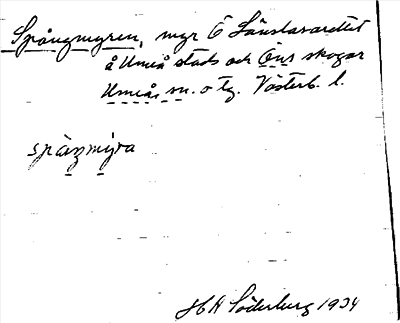 Spångmyren, myr Ö Länslasarettet
å Umeå stads och Öns skogar
Umeå, sn. o tg. Västerb. l.
spångmyra
HH Söderberg 1934